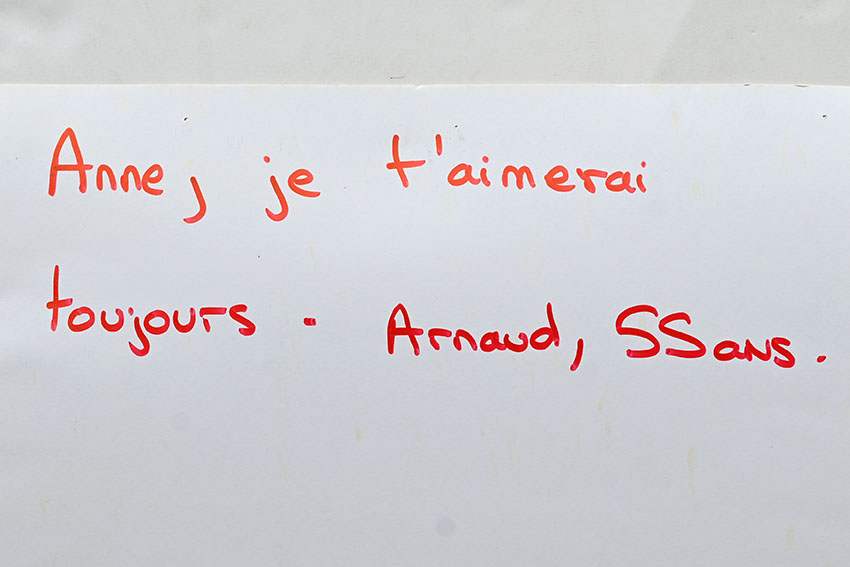 Anne, je t'aimerai
toujours. Arnaud, 55ans.